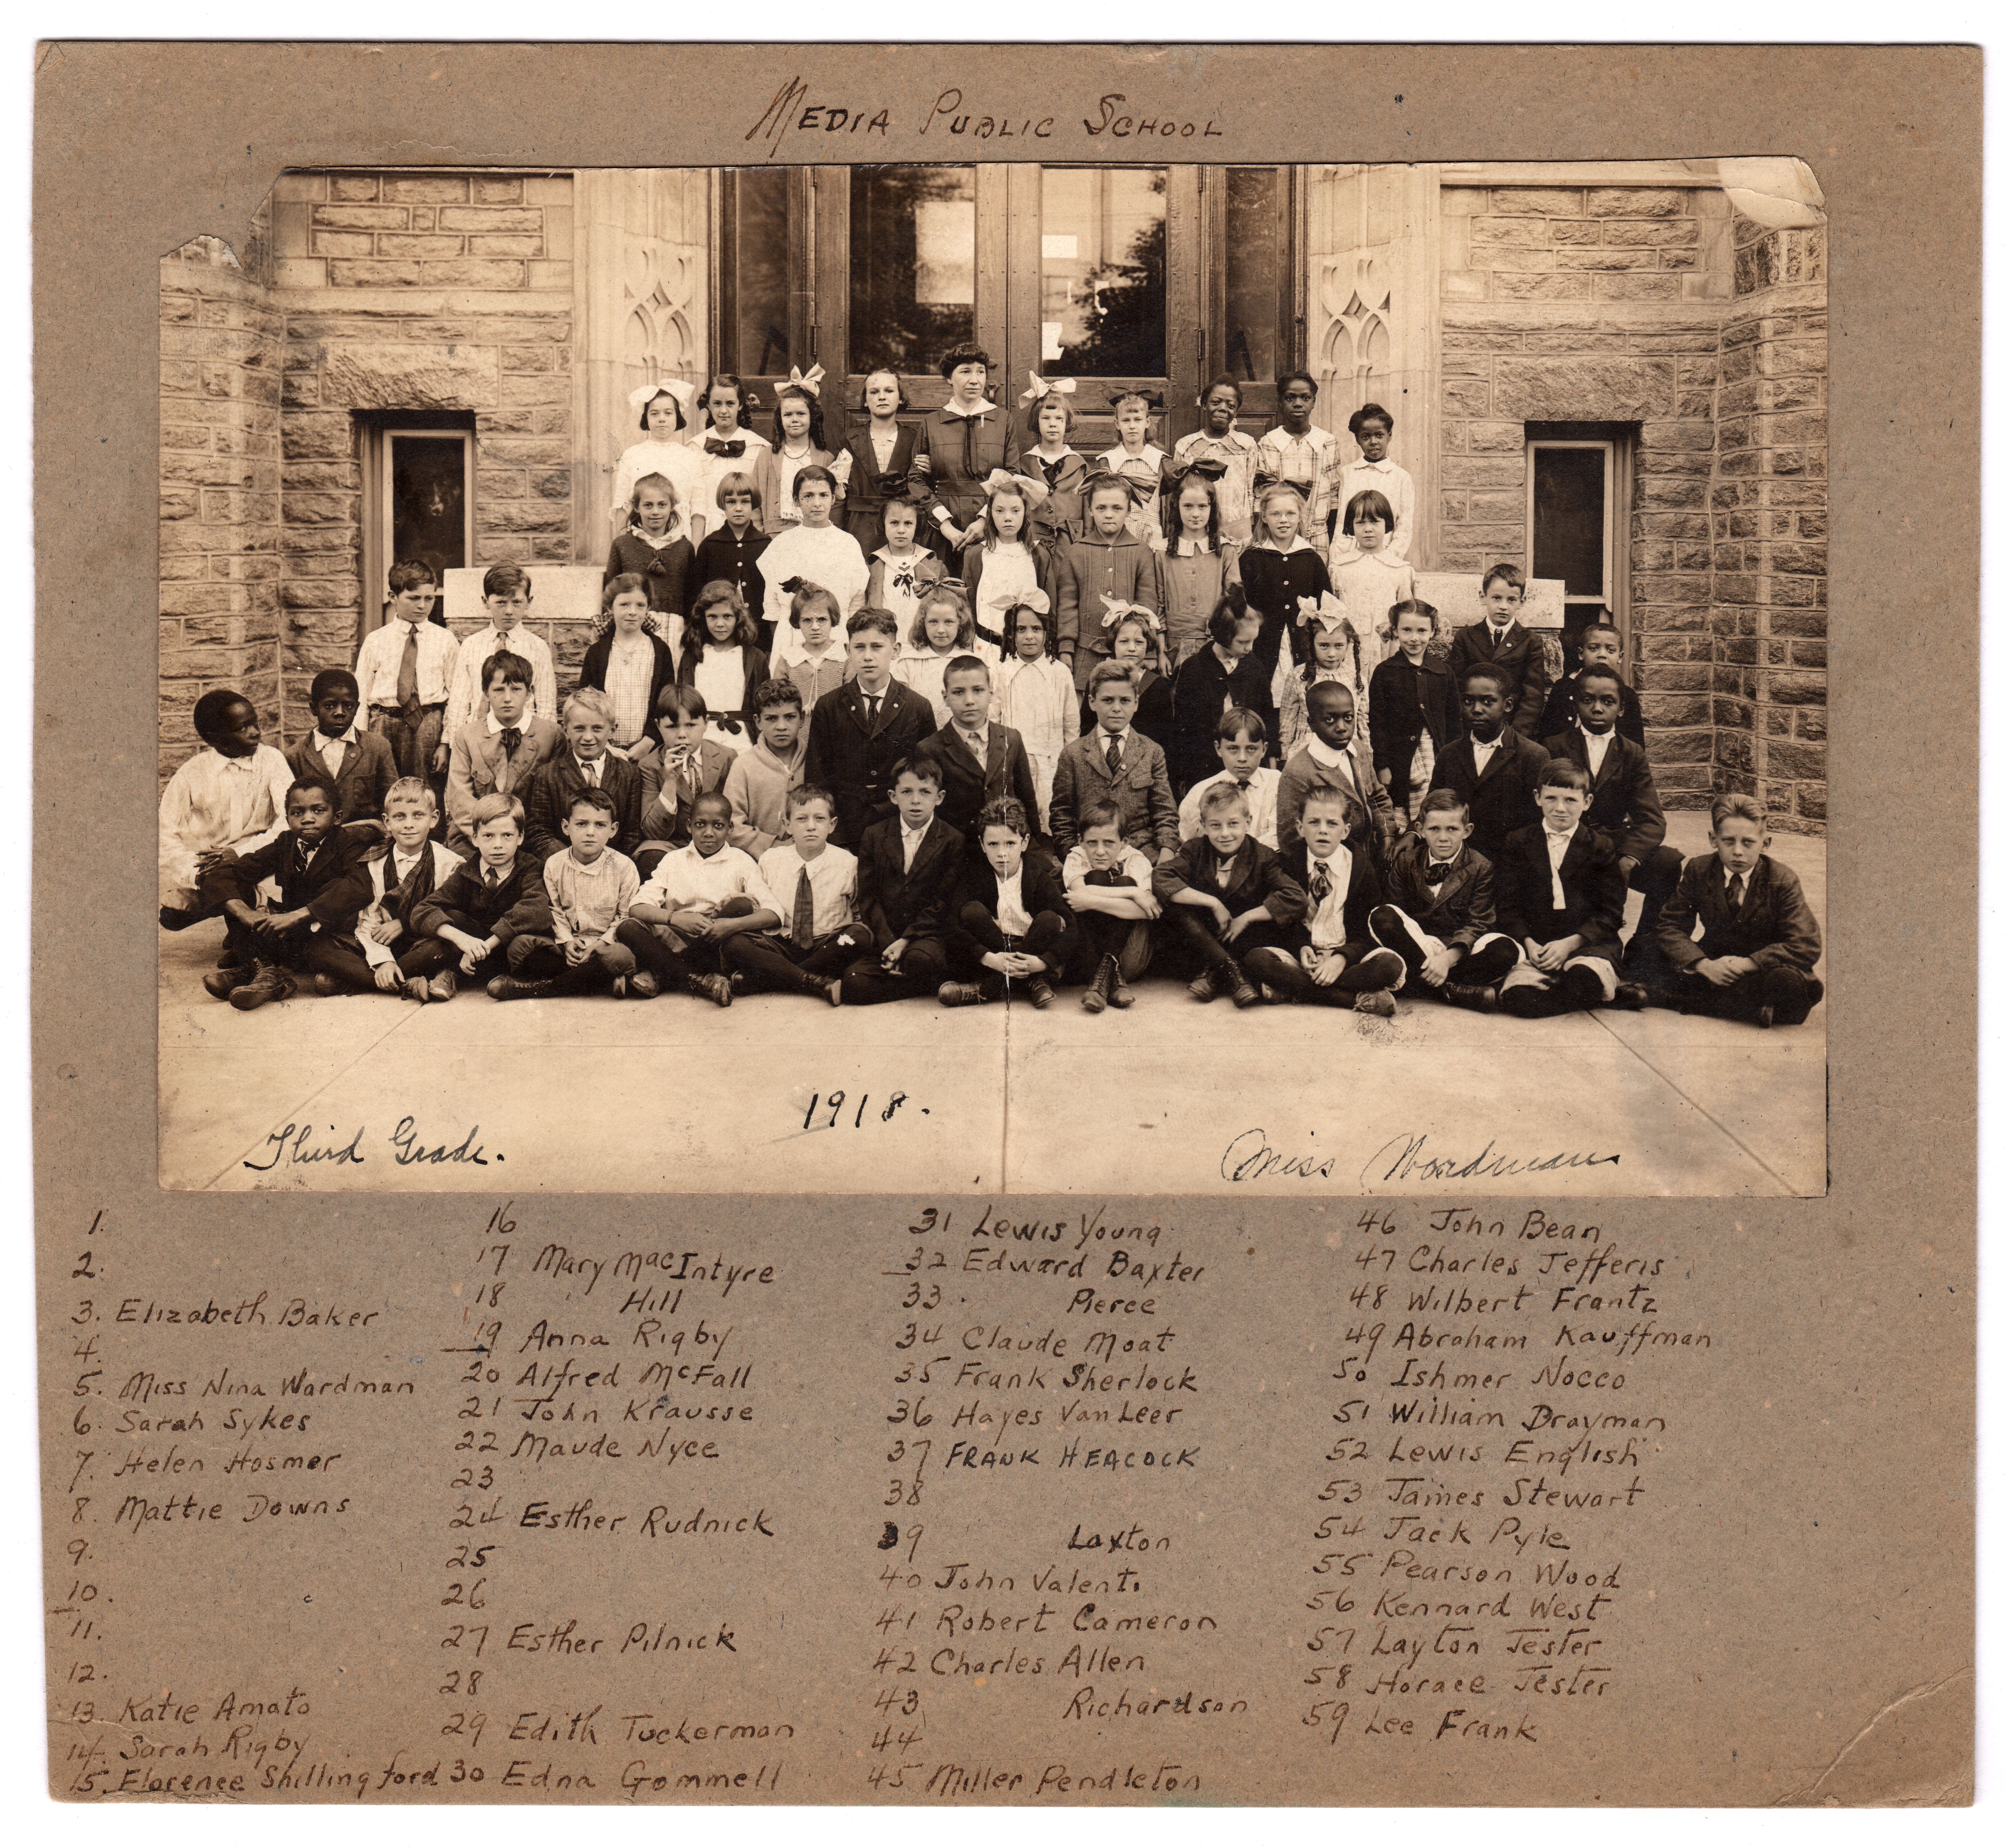 MEDIA PUBLIC SCHOOL
1918.
Third Grade.
Miss Wardman
1.
2.
3. Elizabeth Baker
4.
5. Miss Nina Wardman
6. Sarah Sykes
7. Helen Hosmer
8. Mattie Downs
9.
10.
11.
12.
13. Katie Amato
14. Sarah Rigby
15. Florence Shillingford
16
17 Mary MacIntyre
18 Hill
19 Anna Rigby
20 Alfred McFall
21 John Krausse
22 Maude Nyce
23
24 Esther Rudnick
25
26
27 Esther Pilnick
28
29 Edith Tuckerman
30 Edna Gommell
31 Lewis Young
32 Edward Baxter
33. Pierce
34 Claude Moat
35 Frank Sherlock
36 Hayes VanLeer
37 FRANK HEACOCK
38
39 Laxton
40 John Valenti
41 Robert Cameron
42 Charles Allen
43 Richardson
44
45 Miller Pendleton
46 John Bean
47 Charles Jefferis
48 Wilbert Frantz
49 Abraham Kauffman
50 Ishmer Nocco
51 William Drayman
52 Lewis English
53 James Stewart
54 Jack Pyle
55 Pearson Wood
56 Kennard West
57 Layton Jester
58 Horace Jester
59 Lee Frank